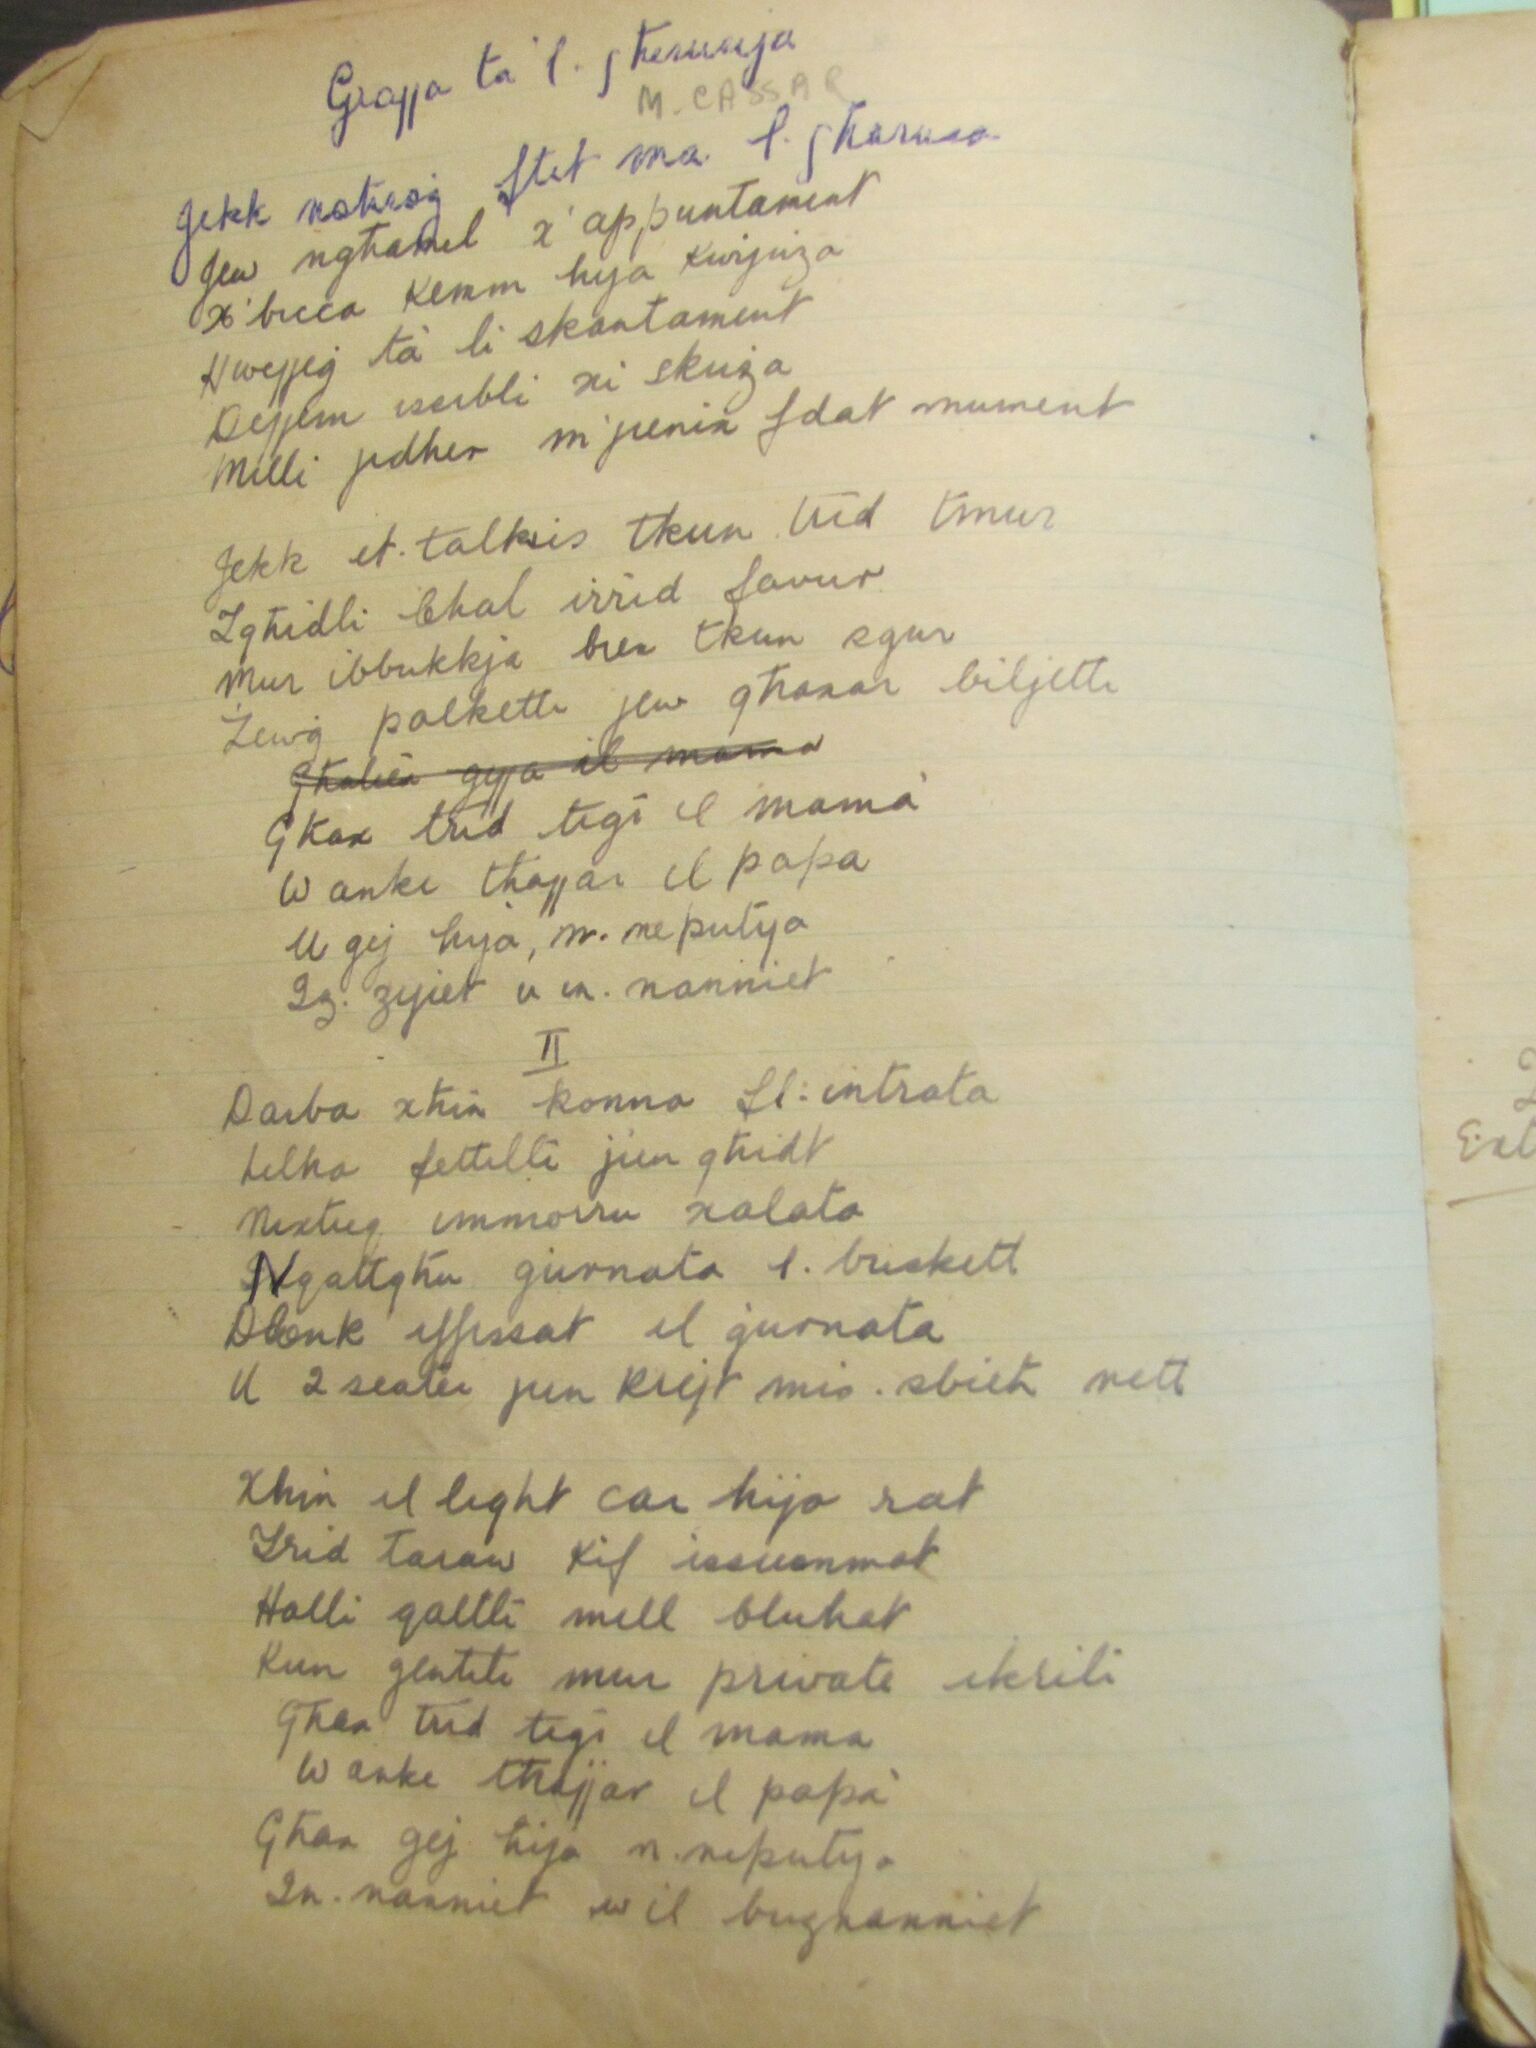 Grajja ta' l. għerusija
M. CASSAR
Jekk noħroġ ftit ma. l. għarusa
Jew ngħamel x'appuntament
X'bicca kemm hija kurjuza
Hwejjeġ ta' li skantament
Dejjem issibli xi skuza
Milli jidher m'jienix f'dat mument
Jekk it-talkies tkun trid tmur
Igħidli Chal irrid favur
Mur ibbukkja biex tkun sgur
Żewġ palketti jew għaxar biljetti
Għaliex ġejja il mama
Għax trid tiġi il mamà
W anki tħajjar il papa
U ġej ħija, n. neputija
Iz. zijiet u in. nanniet
II
Darba xħin konna fl-intrata
Lelha fettilli jien għidt
Nixtieq immorru xalata
Nqattgħu ġurnata l. buskett
Dlonk iffissat il ġurnata
U 2 seater jien krejt mis. sbieħ nett
Xħin il light car hija rat
Irid taraw kif issummat
Ħalli qaltli mill bluhat
Kun ġentili mur private ikrili
Għax trid tiġi il mama
W anke tħajjar il papà
Għax ġej ħija n. neputija
In. nanniet w il buznanniet
Ext